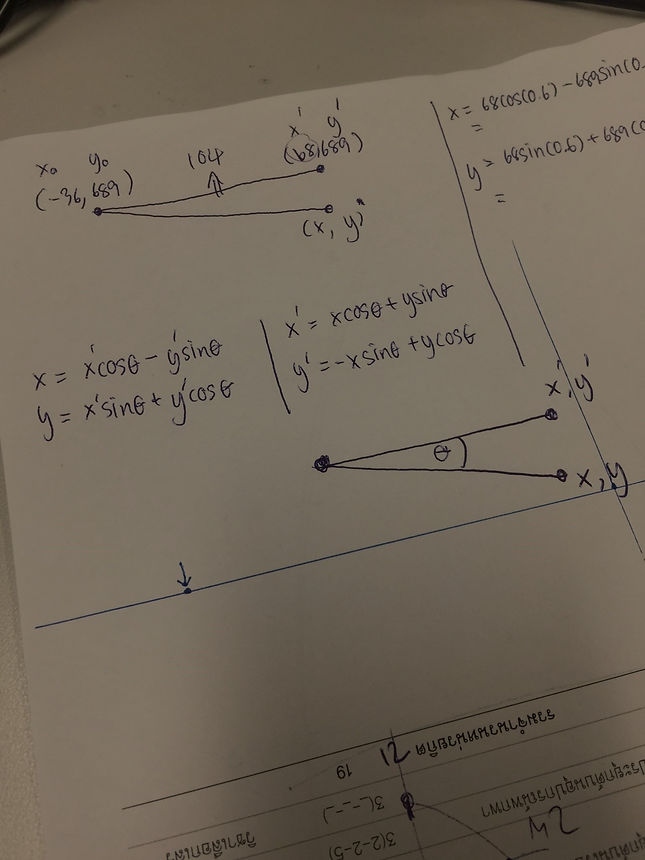 x₀ y₀
(-36, 689)
104
x' y'
(68, 689)
(x, y)
x = 68cos(0.6) - 689sin(0.
=
y = 68sin(0.6) + 689(co
=
x = x'cosθ - y'sinθ
y = x'sinθ + y'cosθ
x' = xcosθ + ysinθ
y' = -xsinθ + ycosθ
x', y'
θ
x, y
รวมจำนวนหน่วยกิต
12
19
3(_-_-_)
3(2-2-5)
วิชาเลือกเสรี